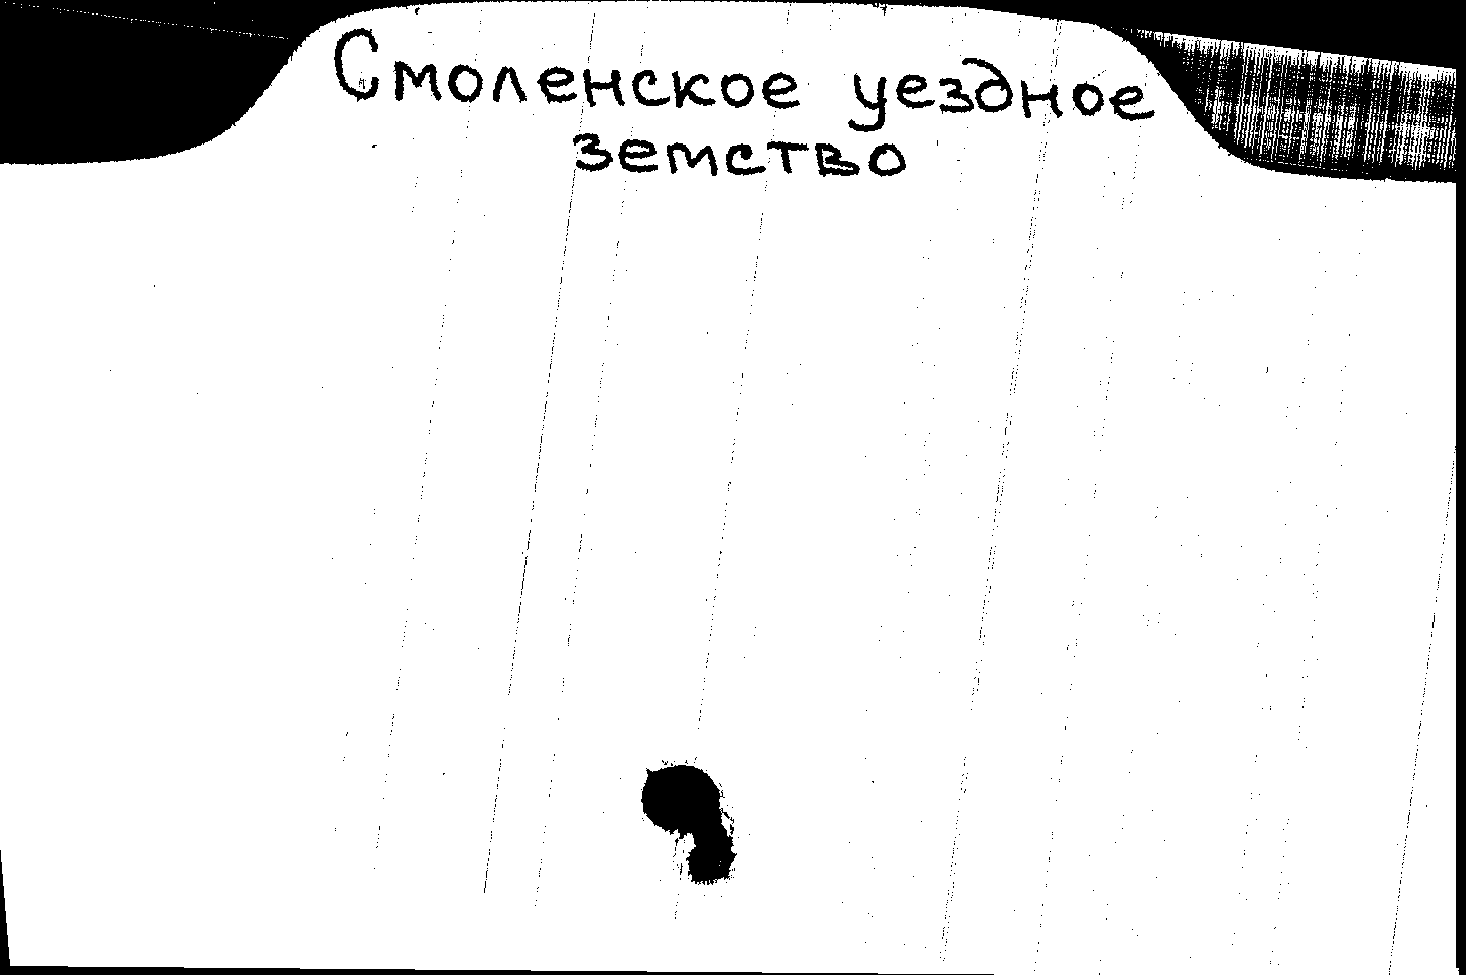 Смоленское уездное
земство